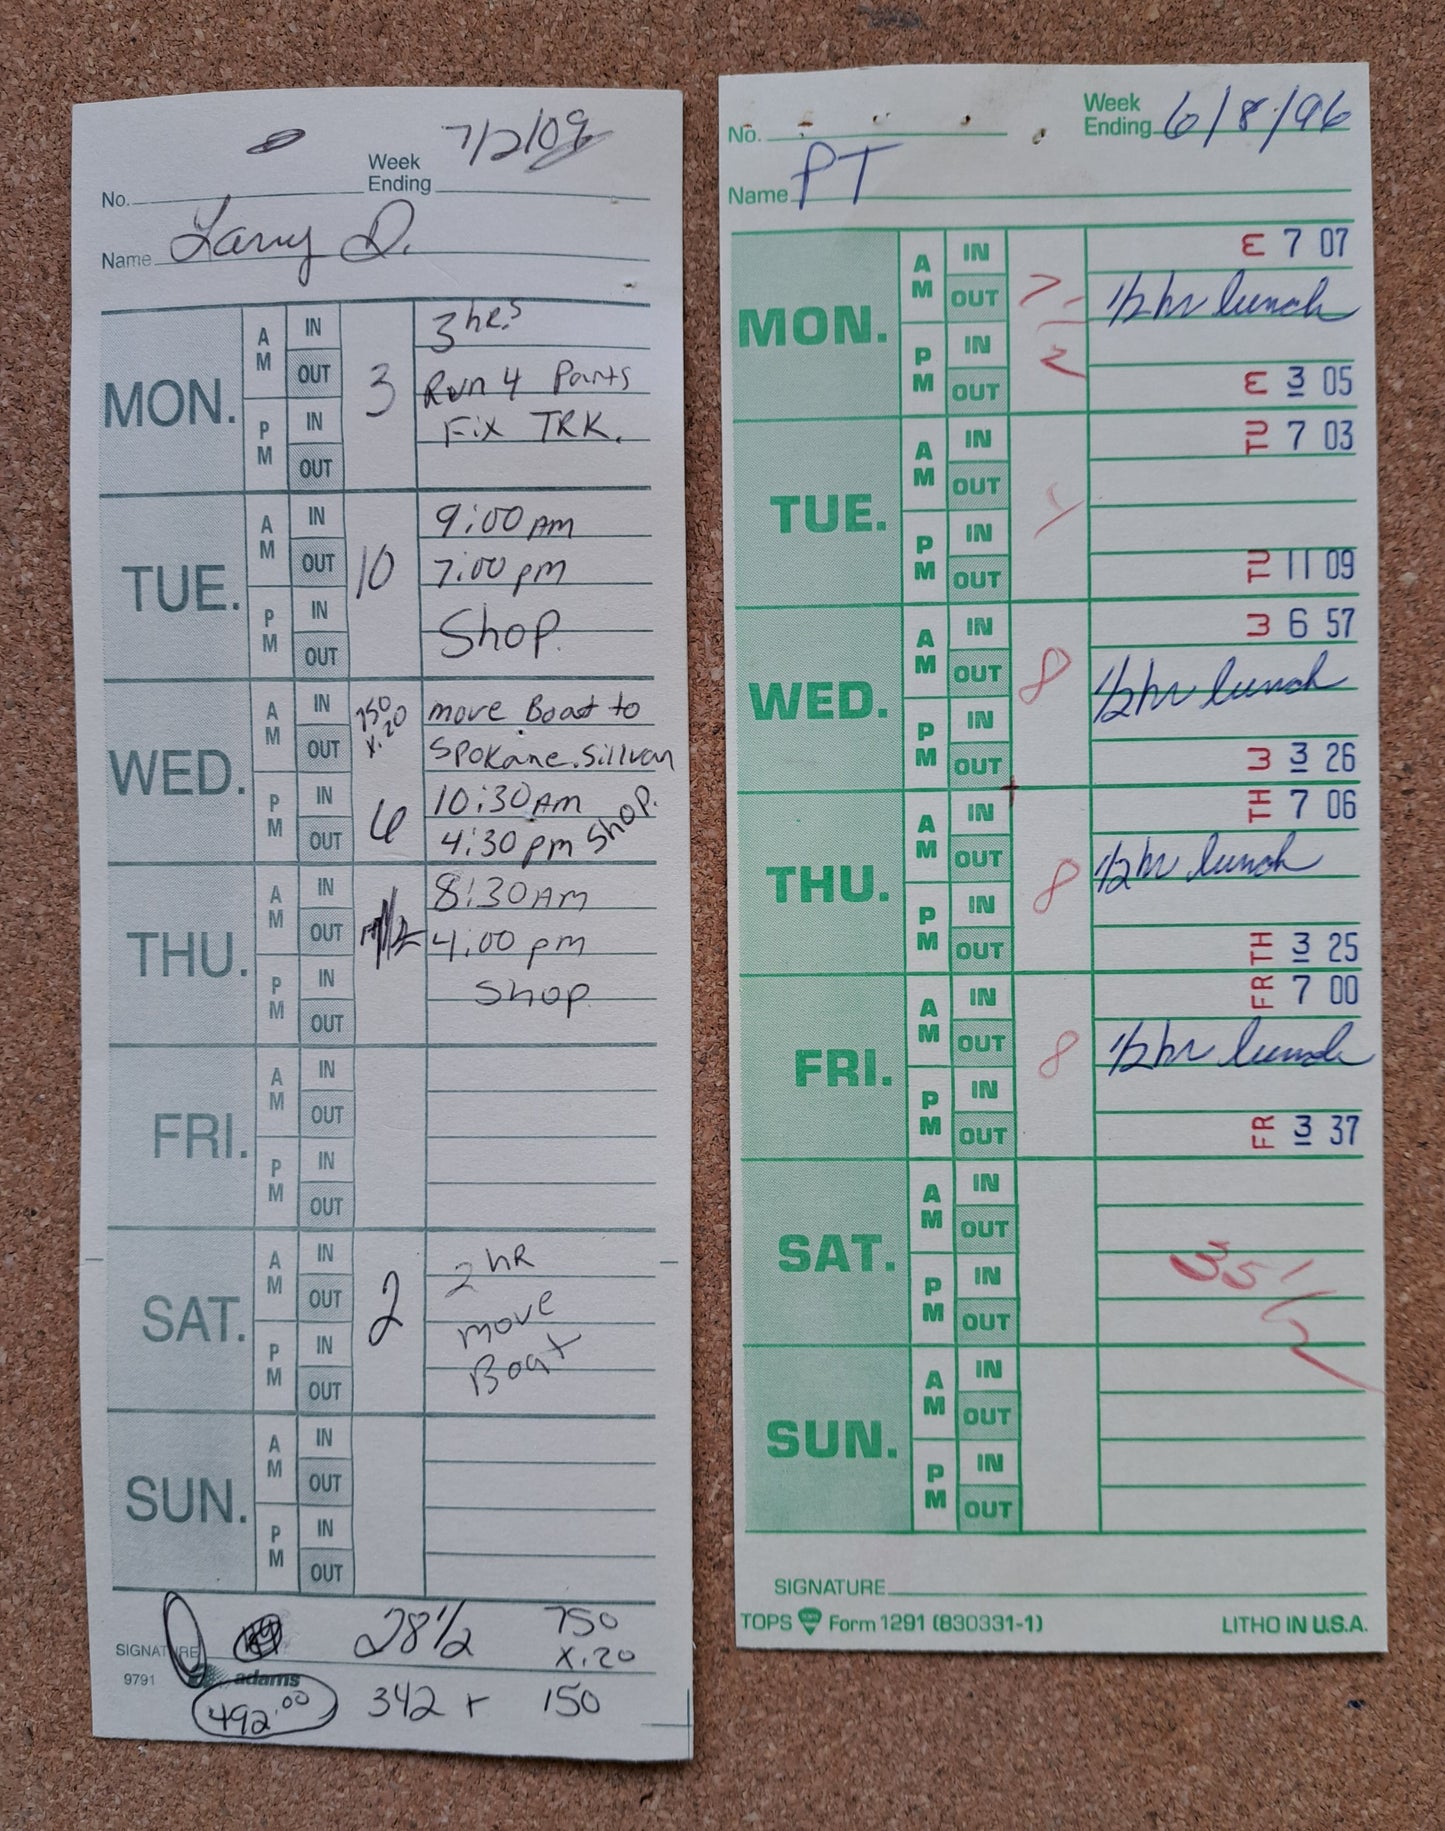 7/2/09
Week
Ending
No.
Name Larry D.
MON.
AM
IN
OUT
PM
IN
OUT
3
3 hrs
Run 4 Parts
Fix TRK.
TUE.
AM
IN
OUT
PM
IN
OUT
10
9:00 AM
7:00 pm
Shop.
WED.
AM
IN
OUT
PM
IN
OUT
750
x.20
6
move Boat to
Spokane.
10:30 AM
4:30 pm Shop.
THU.
AM
IN
OUT
PM
IN
OUT
8:30 AM
4:00 pm
Shop
FRI.
AM
IN
OUT
PM
IN
OUT
SAT.
AM
IN
OUT
PM
IN
OUT
2
2 hR
move
Boat
SUN.
AM
IN
OUT
PM
IN
OUT
28 1/2
750
x.20
SIGNATURE
9791
adams
492.00
342 +
150
Week
Ending 6/8/96
No.
Name PT
MON.
AM
IN
OUT
PM
IN
OUT
E 7 07
1/2 hr lunch
E 3 05
TUE.
AM
IN
OUT
PM
IN
OUT
TU 7 03
TU 11 09
WED.
AM
IN
OUT
PM
IN
OUT
8
3 6 57
1/2 hr lunch
3 3 26
THU.
AM
IN
OUT
PM
IN
OUT
8
TH 7 06
1/2 hr lunch
TH 3 25
FRI.
AM
IN
OUT
PM
IN
OUT
8
FR 7 00
1/2 hr lunch
FR 3 37
SAT.
AM
IN
OUT
PM
IN
OUT
35 1/2
SUN.
AM
IN
OUT
PM
IN
OUT
SIGNATURE
TOPS TOPS Form 1291 (830331-1)
LITHO IN U.S.A.